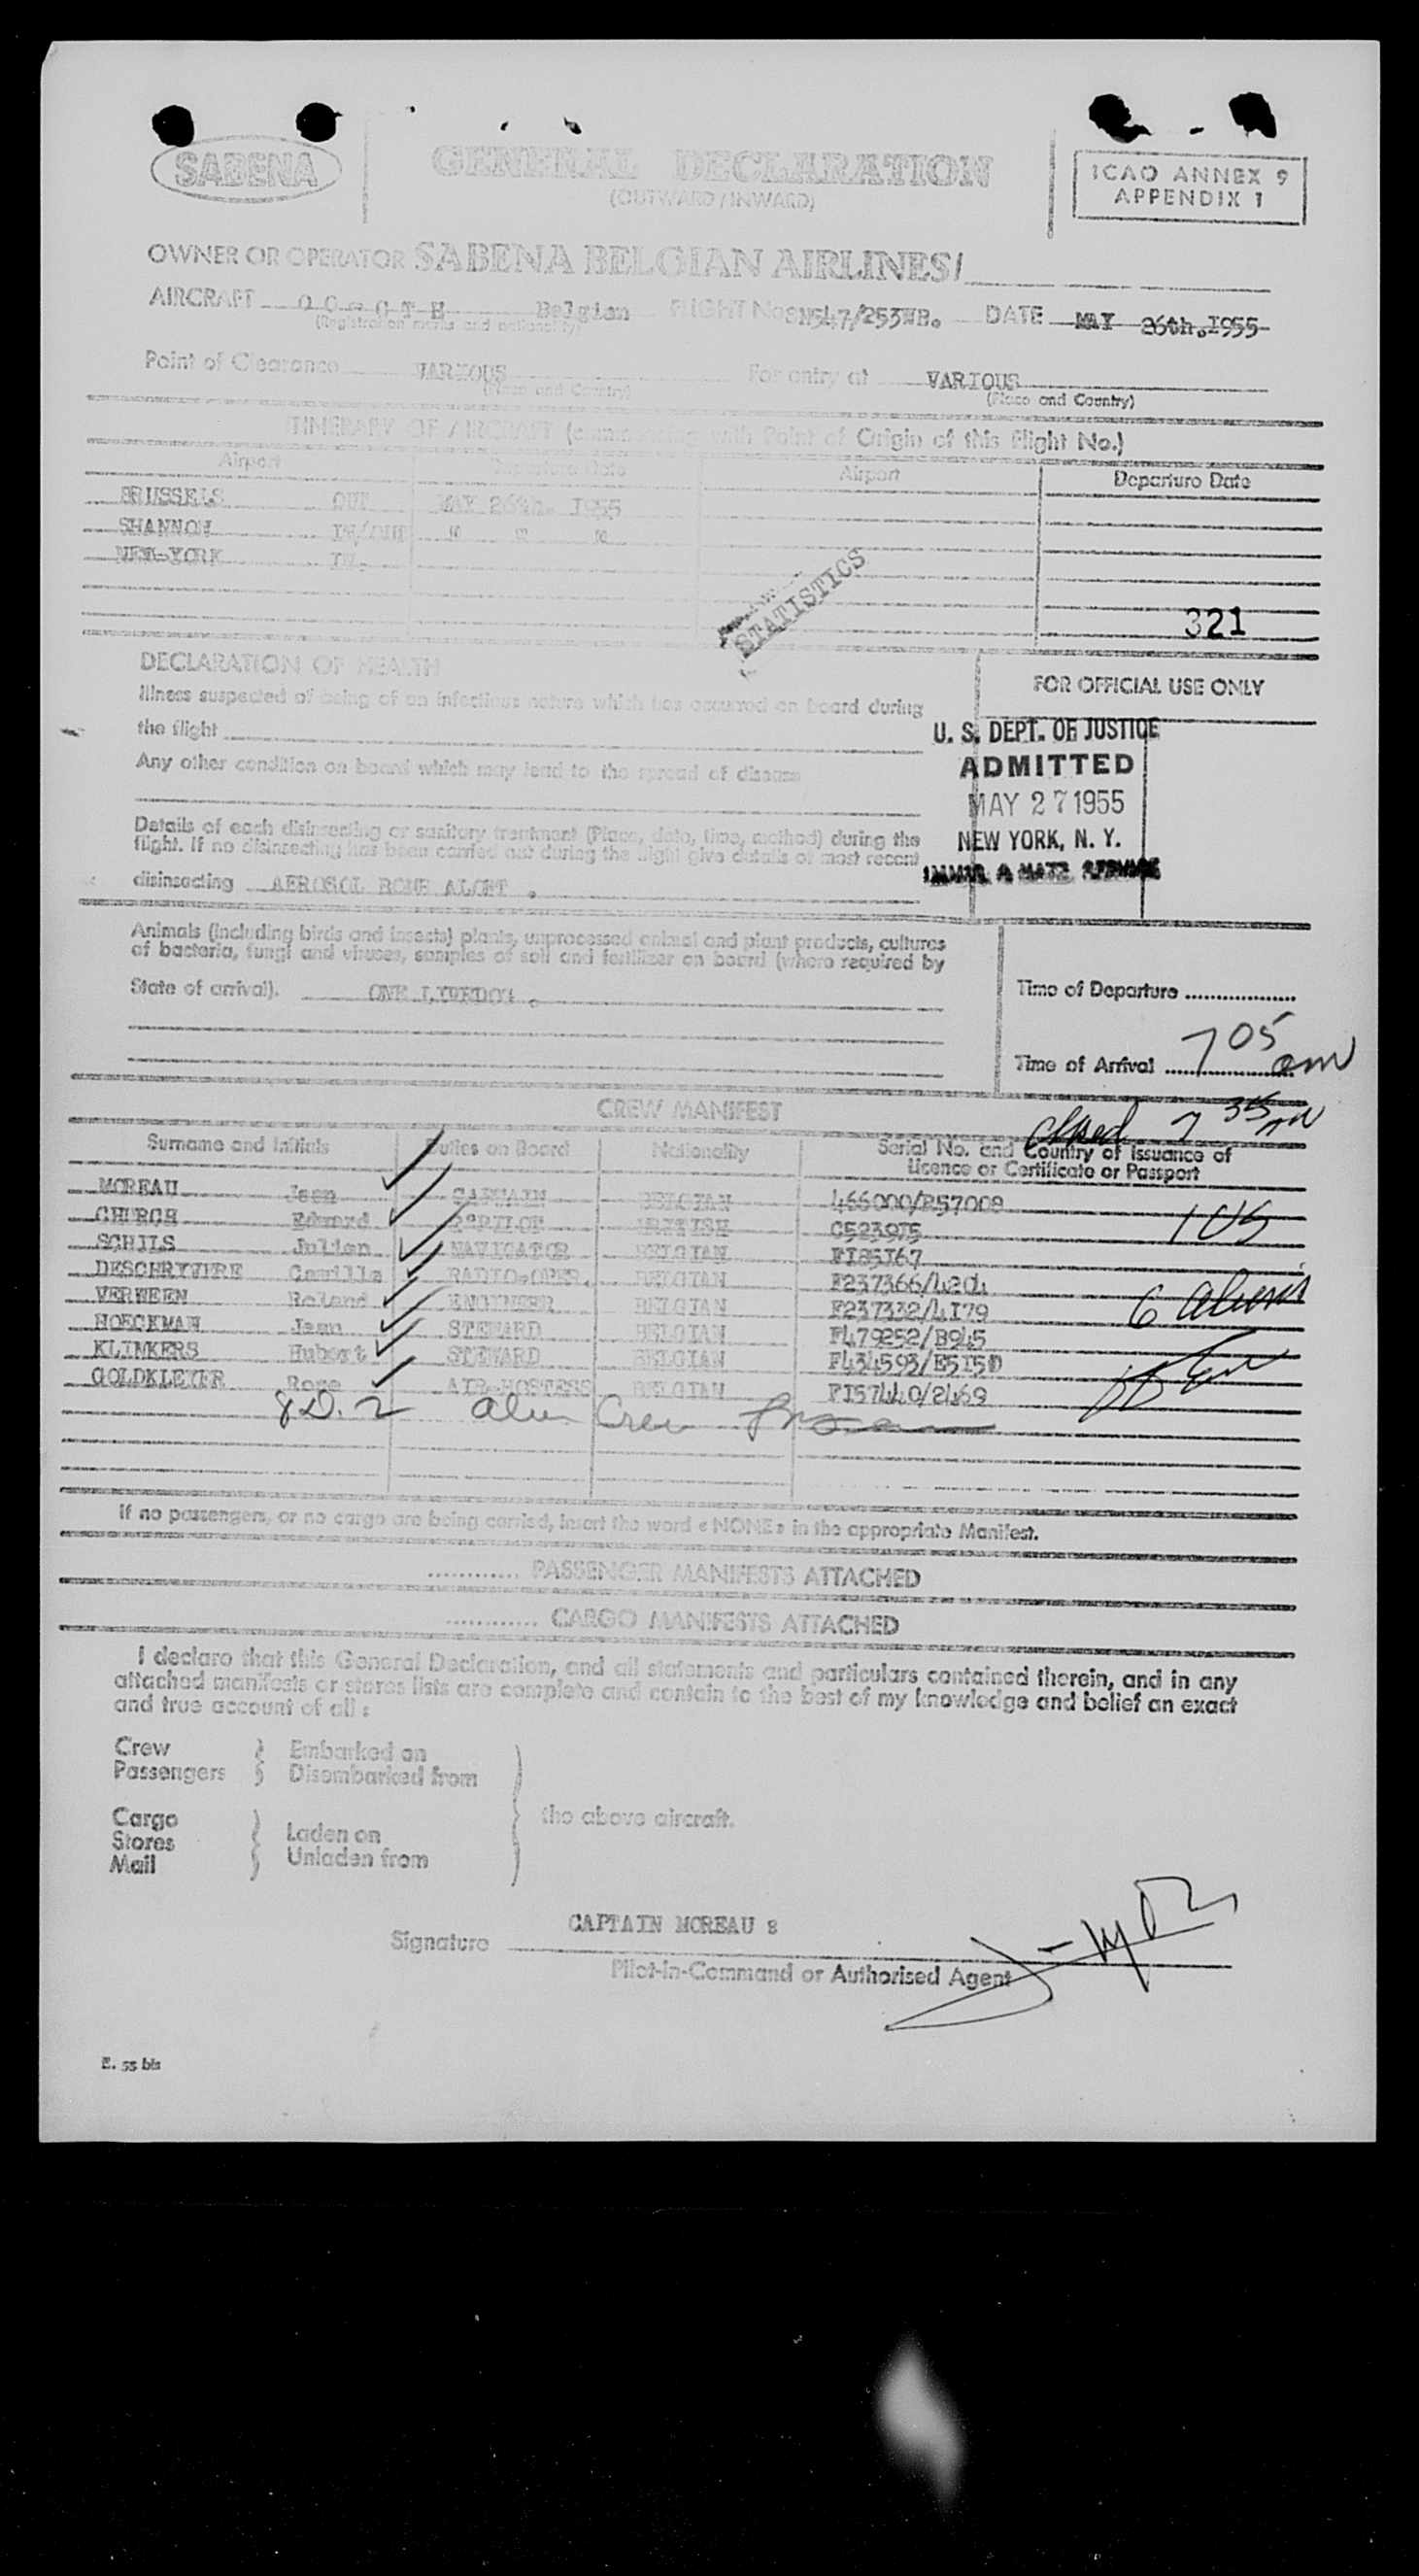 SABENA
GENERAL DECLARATION
(OUTWARD / INWARD)
ICAO ANNEX 9
APPENDIX 1
OWNER OR OPERATOR SABENA BELGIAN AIRLINES/
AIRCRAFT Belgian FLIGHT No SN547/253WB. DATE MAY 26th.I955
(Registration marks and nationality)
Point of Clearance VARIOUS For entry at VARIOUS
(Place and Country) (Place and Country)
ITINERARY OF AIRCRAFT (commencing with Point of Origin of this flight No.)
Airport Departure Date Airport Departure Date
BRUSSELS OUT MAY 26th. I955
SHANNON IN/OUT " " "
NEW-YORK IN.
STATISTICS
321
DECLARATION OF HEALTH
Illness suspected of being of an infectious nature which has occurred on board during
the flight
Any other condition on board which may lead to the spread of disease
Details of each disinsecting or sanitary treatment (Place, date, time, method) during the
flight. If no disinsecting has been carried out during the flight give details of most recent
disinsecting AEROSOL BOMB ALOFT .
FOR OFFICIAL USE ONLY
U. S. DEPT. OF JUSTICE
ADMITTED
MAY 27 1955
NEW YORK, N. Y.
Animals (including birds and insects) plants, unprocessed animal and plant products, cultures
of bacteria, fungi and viruses, samples of soil and fertilizer on board (where required by
State of arrival). ONE
Time of Departure
Time of Arrival 7 05 am
CREW MANIFEST
7 35
Surname and Initials Duties on Board Nationality Serial No. and Country of Issuance of
Licence or Certificate or Passport
MOREAU Jean CAPTAIN BELGIAN 466000/B57008
CHURCH Edward BRITISH C5239I5
1 US
SCHILS Julien NAVIGATOR BELGIAN FI85I67
DESCHRYVERE Camille RADIO-OPER. BELGIAN F237366/4204
VERWEEN Roland ENGINEER BELGIAN F237332/4I79
6 aliens
HOECKMAN Jean STEWARD BELGIAN F479252/B945
KLINKERS Hubert STEWARD BELGIAN F434593/E5I5D
GOLDKLEYER Rose AIR-HOSTESS BELGIAN FI57440/2469
alien Crew
If no passengers, or no cargo are being carried, insert the word « NONE » in the appropriate Manifest.
............ PASSENGER MANIFESTS ATTACHED
............ CARGO MANIFESTS ATTACHED
I declare that this General Declaration, and all statements and particulars contained therein, and in any
attached manifests or stores lists are complete and contain to the best of my knowledge and belief an exact
and true account of all :
Crew Embarked on
Passengers Disembarked from
the above aircraft.
Cargo
Stores Laden on
Mail Unladen from
CAPTAIN MOREAU :
Signature
Pilot-in-Command or Authorised Agent
E. 55 bis